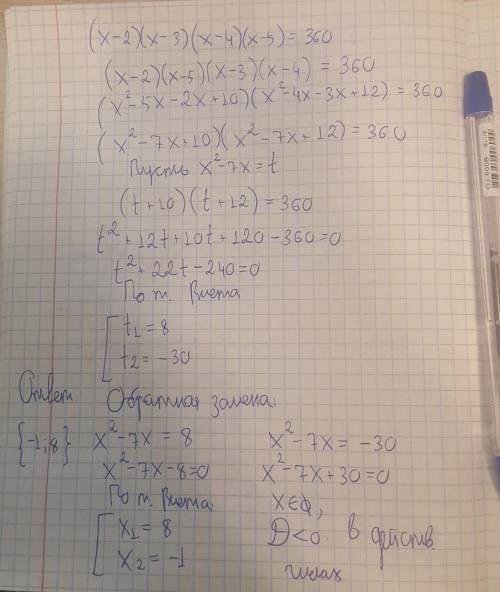 (x-2)(x-3)(x-4)(x-5)=360
(x-2)(x-5)(x-3)(x-4)=360
(x²-5x-2x+10)(x²-4x-3x+12)=360
(x²-7x+10)(x²-7x+12)=360
Пусть x²-7x=t
(t+10)(t+12)=360
t²+12t+10t+120-360=0
t²+22t-240=0
По т. Виета
[t₁=8
t₂=-30
Ответ: Обратная замена:
{-1;8} x²-7x=8 x²-7x=-30
x²-7x-8=0 x²-7x+30=0
По т. Виета x∈ϕ,
[x₁=8 D<0 в действ.
x₂=-1 числах